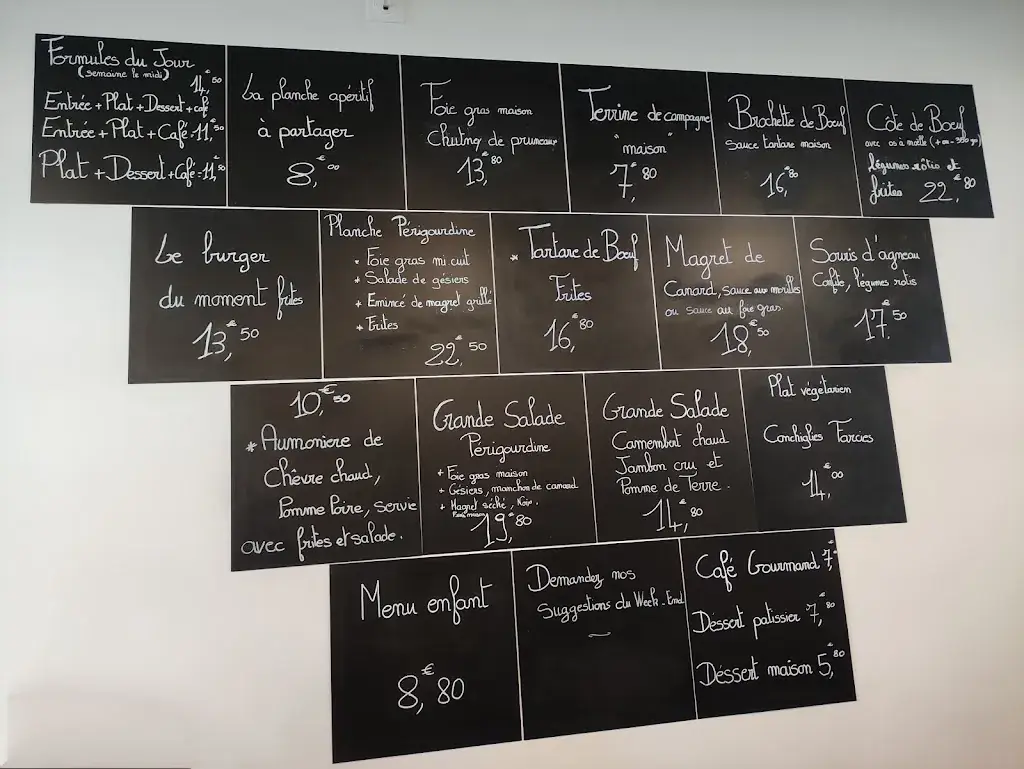 Formules du Jour
(semaine le midi) 14,€50
Entrée + Plat + Dessert + café
Entrée + Plat + Café = 11,€50
Plat + Dessert + Café = 11,€50
La planche apéritif
à partager
8,€00
Foie gras maison
Chutney de pruneaux
13,€80
Terrine de campagne
"maison"
7,€80
Brochette de Boeuf
sauce tartare maison
16,€80
Côte de Boeuf
avec os à moëlle (+ou- 350 gr)
légumes rôtis et
frites 22,€80
Le burger
du moment frites
13,€50
Planche Périgourdine
* Foie gras mi cuit
+ Salade de gésiers
+ Emincé de magret grillé
+ Frites
22,€50
* Tartare de Boeuf
Frites
16,€80
Magret de
Canard, sauce aux morilles
ou sauce au foie gras.
18,€50
Souris d'agneau
Confite, légumes rotis
17.€50
10,€50
* Aumoniere de
Chèvre chaud,
Pomme Poire, servie
avec frites et salade.
Grande Salade
Périgourdine
+ Foie gras maison
+ Gésiers, manchon de canard
+ Magret séché, Noix.
19,€80
Grande Salade
Camembert chaud
Jambon cru et
Pomme de Terre.
14,€80
Plat végétarien
Conchiglies Farcies
14,€00
Menu enfant
8,€80
Demandez nos
Suggestions du Week-End
Café Gourmand 7,€
Déssert patissier 7,€80
Déssert maison 5,€80